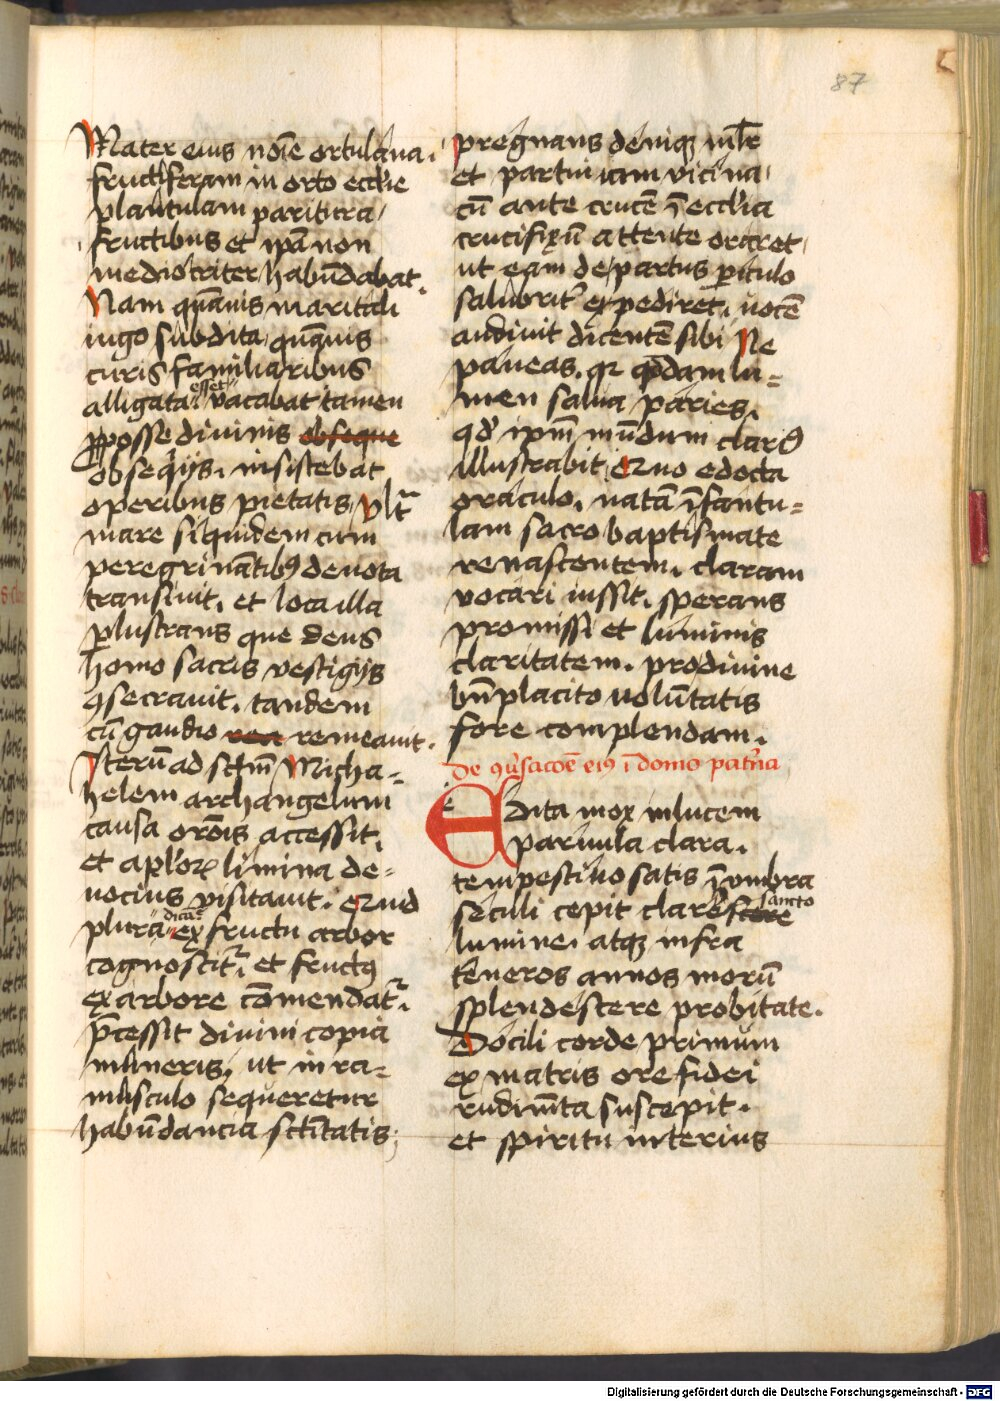 87
Mater eius noīe ortulana.
fructiferam in orto eccl'ie
plantulam paritura
fructibus et ip̄a non
mediocriter habūdabat.
Nam quāuis maritali
iugo subdita quāuis
curis familiaribus
alligata esset vacabat tamen
p posse diuinis obseque
obsequijs. insistebat
operibus pietatis Vlt̄
mare siquidem cum
peregrinātibꝰ deuota
transiuit. et loca illa
ꝑlustrans que deus
homo sacris vestigijs
ꝯsecrauit. tandem
cū gaudio remeauit.
Iterū ad sct̄m Micha-
helem archangelum
causa orōis accessit.
et apl'oꝝ limina de-
uocius visitauit. Quid
plura dicā ex fructu arbor
cognoscit᷑. et fructꝰ
ex arbore cōmendat᷑.
p̄cessit diuini copia
muneris. ut in ra-
musculo sequeretur
habūdancia sct̄itatis;
pregnans deniqꝫ mat̄
et partui iam vicina
cū ante crucē ī eccl'ia
crucifixū attente oraret
ut eam de partus ꝑiculo
salubrit᷑ expediret. uocē
audiuit dicentē sibi Ne
paueas. qꝛ quōdam lu-
men salua paries.
qd' ip̄m mūdum clariꝰ
illustrabit Quo edocta
oraculo. natā īfantu-
lam sacro baptismate
renascentem. claram
vocari iussit. sperans
promissi et luminis
claritatem. pro diuine
bn̄placito uolūtatis
fore complendam.
De ꝯu'sacōe eiꝰ ī domo pat'na
e
Edita mox in lucem
paruula clara.
tempestiuo satis ī vmbra
seculi cepit clarescere sancto
lumine. atqꝫ infra
teneros annos morū
splendescere probitate.
Docili corde primum
ex matris ore fidei
rudimēta suscepit.
et spiritu interius
Digitalisierung gefördert durch die Deutsche Forschungsgemeinschaft - DFG